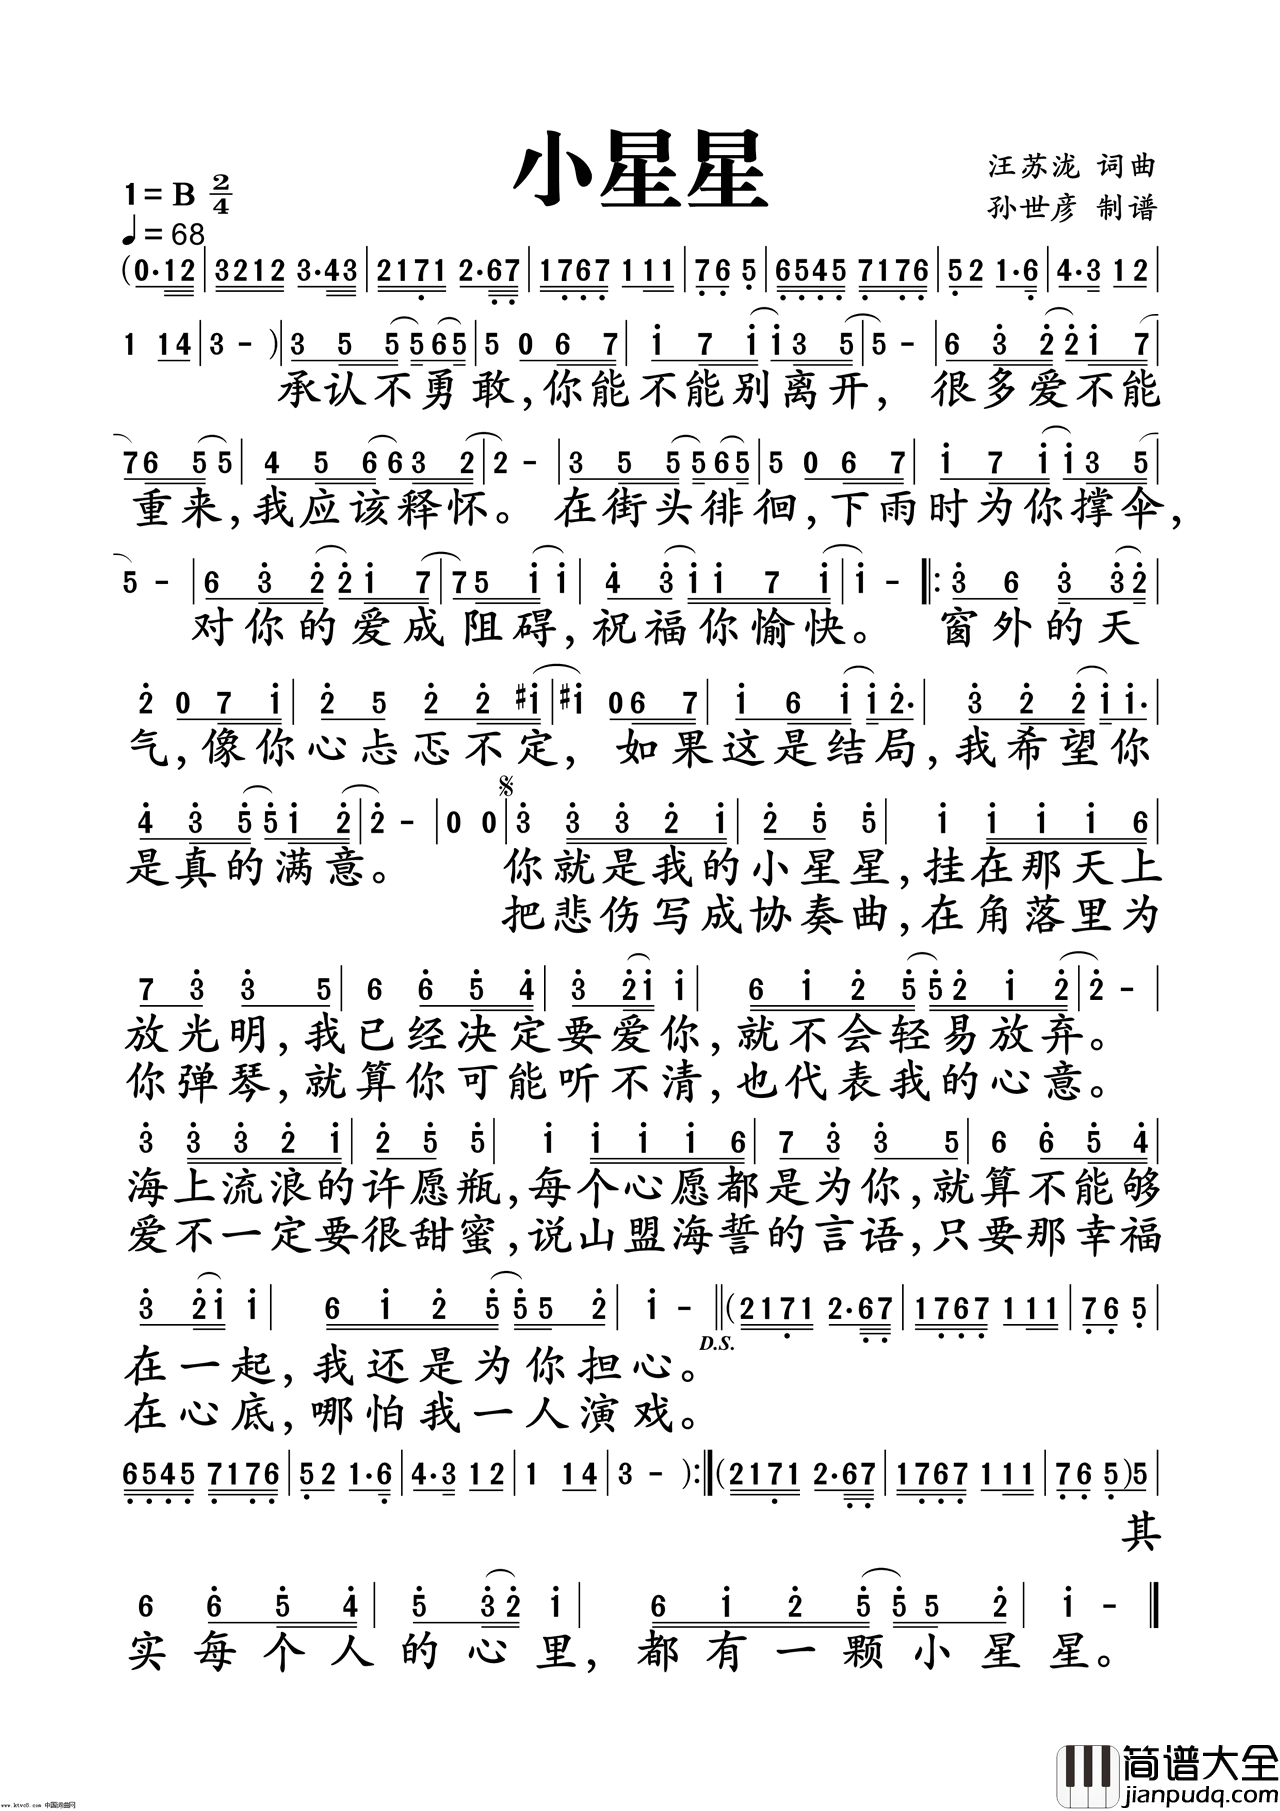 小星星
汪苏泷 词曲
孙世彦 制谱
1=B 2/4
♩=68
(0·12|3212 3·43|2171 2·67|1767 111|76 5|6545 7176|52 1·6|4·3 12|
1 14|3 - )|3 5 5 565|5 0 6 7|i 7 i i 3 5|5 -|6 3 2 2 i 7|
承认不勇敢,你能不能别离开, 很多爱不能
76 5 5|4 5 6 6 3 2|2 -|3 5 5 565|5 0 6 7|i 7 i i 3 5|
重来,我应该释怀。在街头徘徊,下雨时为你撑伞,
5 -|6 3 2 2 i 7|75 i i|4 3 i i 7 i|i -||:3 6 3 32|
对你的爱成阻碍,祝福你愉快。 窗外的天
2 0 7 i|2 5 2 2 #i|#i 06 7|i 6 i i2·|3 2 2 i i·|
气,像你心忐忑不定, 如果这是结局,我希望你
4 3 5 5 i 2|2 -|0 0|3 3 3 2 i|2 5 5|i i i i 6|
是真的满意。 你就是我的小星星,挂在那天上
把悲伤写成协奏曲,在角落里为
7 3 3 5|6 6 5 4|3 2i i|6 i 2 5 5 2 i 2|2 -|
放光明,我已经决定要爱你,就不会轻易放弃。
你弹琴,就算你可能听不清,也代表我的心意。
3 3 3 2 i|2 5 5|i i i i 6|7 3 3 5|6 6 5 4|
海上流浪的许愿瓶,每个心愿都是为你,就算不能够
爱不一定要很甜蜜,说山盟海誓的言语,只要那幸福
3 2i i|6 i 2 5 5 5 2|i -||(2171 2·67|1767 111|76 5|
D.S.
在一起,我还是为你担心。
在心底,哪怕我一人演戏。
6545 7176|52 1·6|4·3 12|1 14|3 - ):||(2171 2·67|1767 111|76 5)5|
其
6 6 5 4|5 32 i|6 i 2 5 5 5 2|i -||
实每个人的心里,都有一颗小星星。
简谱大全
jianpudq.com
www.ktvc8.com 中国词曲网